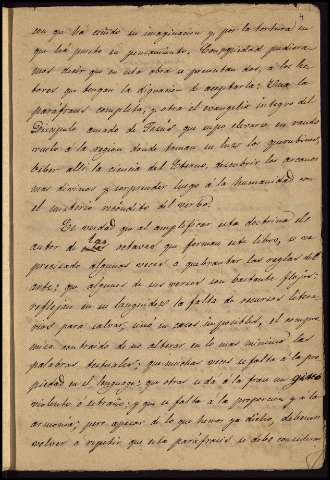 4
con que ha ceñido su imaginacion y por la tortura en
que ha puesto su pensamiento. Con propiedad pudiera-
mos decir que en esta obra se presentan dos, á los lec-
tores que tengan la dignacion de aceptarla: Una la
paráfrasis completa; y otra el evangelio integro del
Discípulo amado de Jesús que supo elevarse en raudo
vuelo á la region donde toman su luz los querubines,
beber allí la ciencia del Eterno, descubrir los arcanos
mas divinos y sorprender luego á la humanidad con
el misterio recóndito del Verbo.
Es verdad que al amplificar esta doctrina el
autor de las octavas que forman este libro, se ve
precisado algunas veces á quebrantar las reglas del
arte; que algunos de sus versos son bastante flojos;
reflejan en su languidez la falta de recursos litera-
rios para salvar, sinó en casos imposibles, el compro-
miso contraido de no alterar en lo mas minimo las
palabras textuales; que muchas veces se falta á la pro-
piedad en el lenguage; que otras se dá á la frase un giro
violento ó estraño, y que se falta á la proporcion y á la
armonia; pero apesar de lo que hemos ya dicho, debemos
volver á repetir que esta paráfrasis se debe considerar